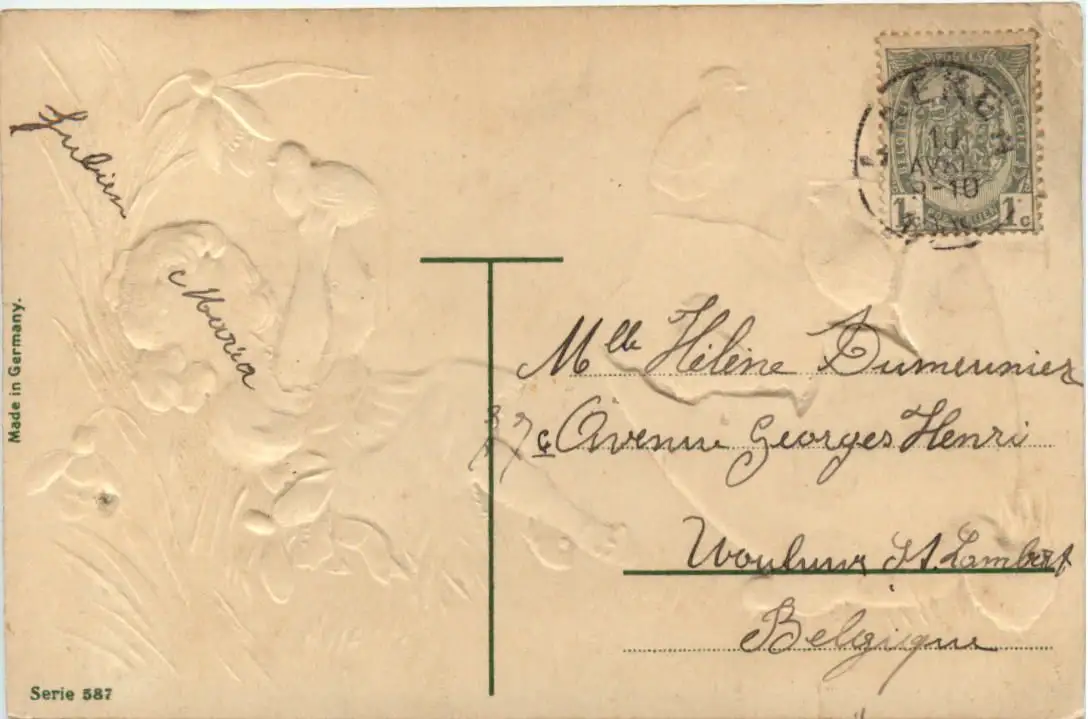 Julien
Maria
Made in Germany.
Serie 587
BELGIQUE
1c 1c
AVRIL
Mlle Hélène Dumeunier
Avenue Georges Henri
Woluwe St. Lambert
Belgique